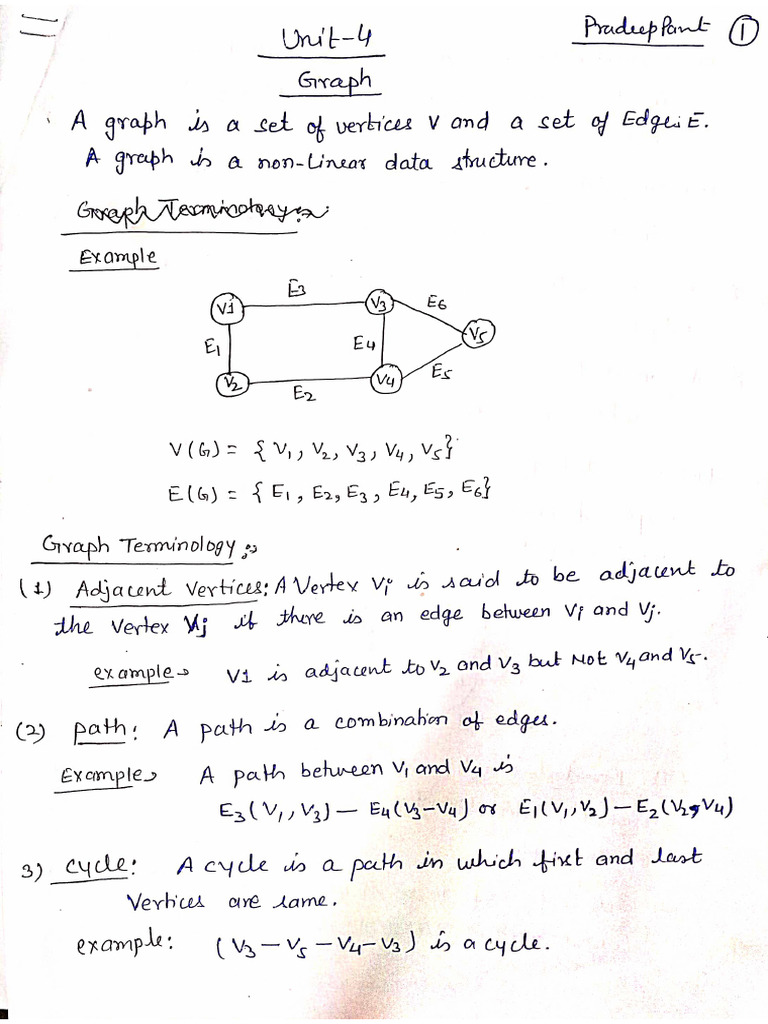 Unit-4
Pradeep Pant 1
Graph
A graph is a set of vertices V and a set of Edges E.
A graph is a non-Linear data structure.
Graph Terminology:-
Example
E3
V1
V3
E6
E1
E4
V5
V2
V4
E5
E2
V(G) = { V1, V2, V3, V4, V5}
E(G) = { E1, E2, E3, E4, E5, E6}
Graph Terminology :-
(1) Adjacent Vertices: A Vertex Vi is said to be adjacent to
the vertex Vj if there is an edge between Vi and Vj.
example→ V1 is adjacent to V2 and V3 but NOT V4 and V5.
(2) path: A path is a combination of edges.
Example→ A path between V1 and V4 is
E3(V1, V3) — E4(V3–V4) or E1(V1, V2) — E2(V2, V4)
3) cycle: A cycle is a path in which first and last
Vertices are same.
example: (V3 — V5 — V4 — V3) is a cycle.